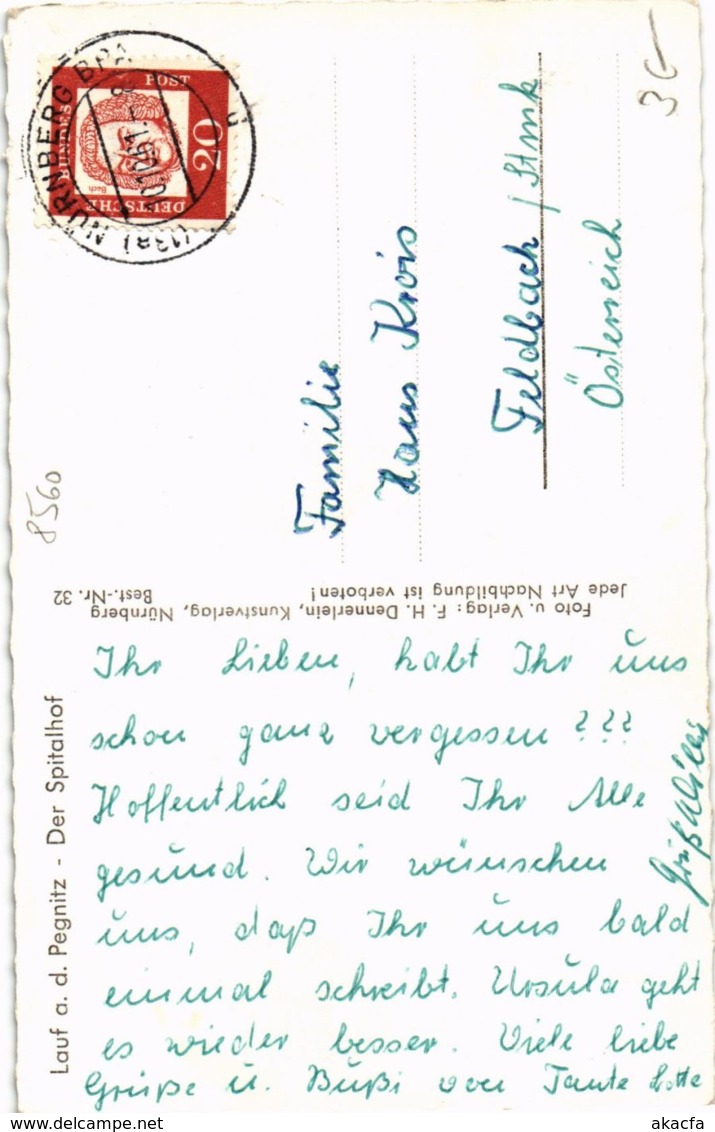 Lauf a. d. Pegnitz - Der Spitalhof
Ihr Lieben, habt Ihr uns
schon ganz vergessen ???
Hoffentlich seid Ihr Alle
gesund. Wir wünschen
uns, daß Ihr uns bald
einmal schreibt. Ursula geht
es wieder besser. Viele liebe
Grüße u. Bußi von Tante Lotte
Gruß
Foto u. Verlag: F. H. Dennerlein, Kunstverlag, Nürnberg
Jede Art Nachbildung ist verboten!
Best.-Nr. 32
Familie
Hans Krois
Feldbach / Stmk
Österreich
DEUTSCHE
BUNDES
POST
20
Bach
(13a) NÜRNBERG BPA
8560
36
akacfa